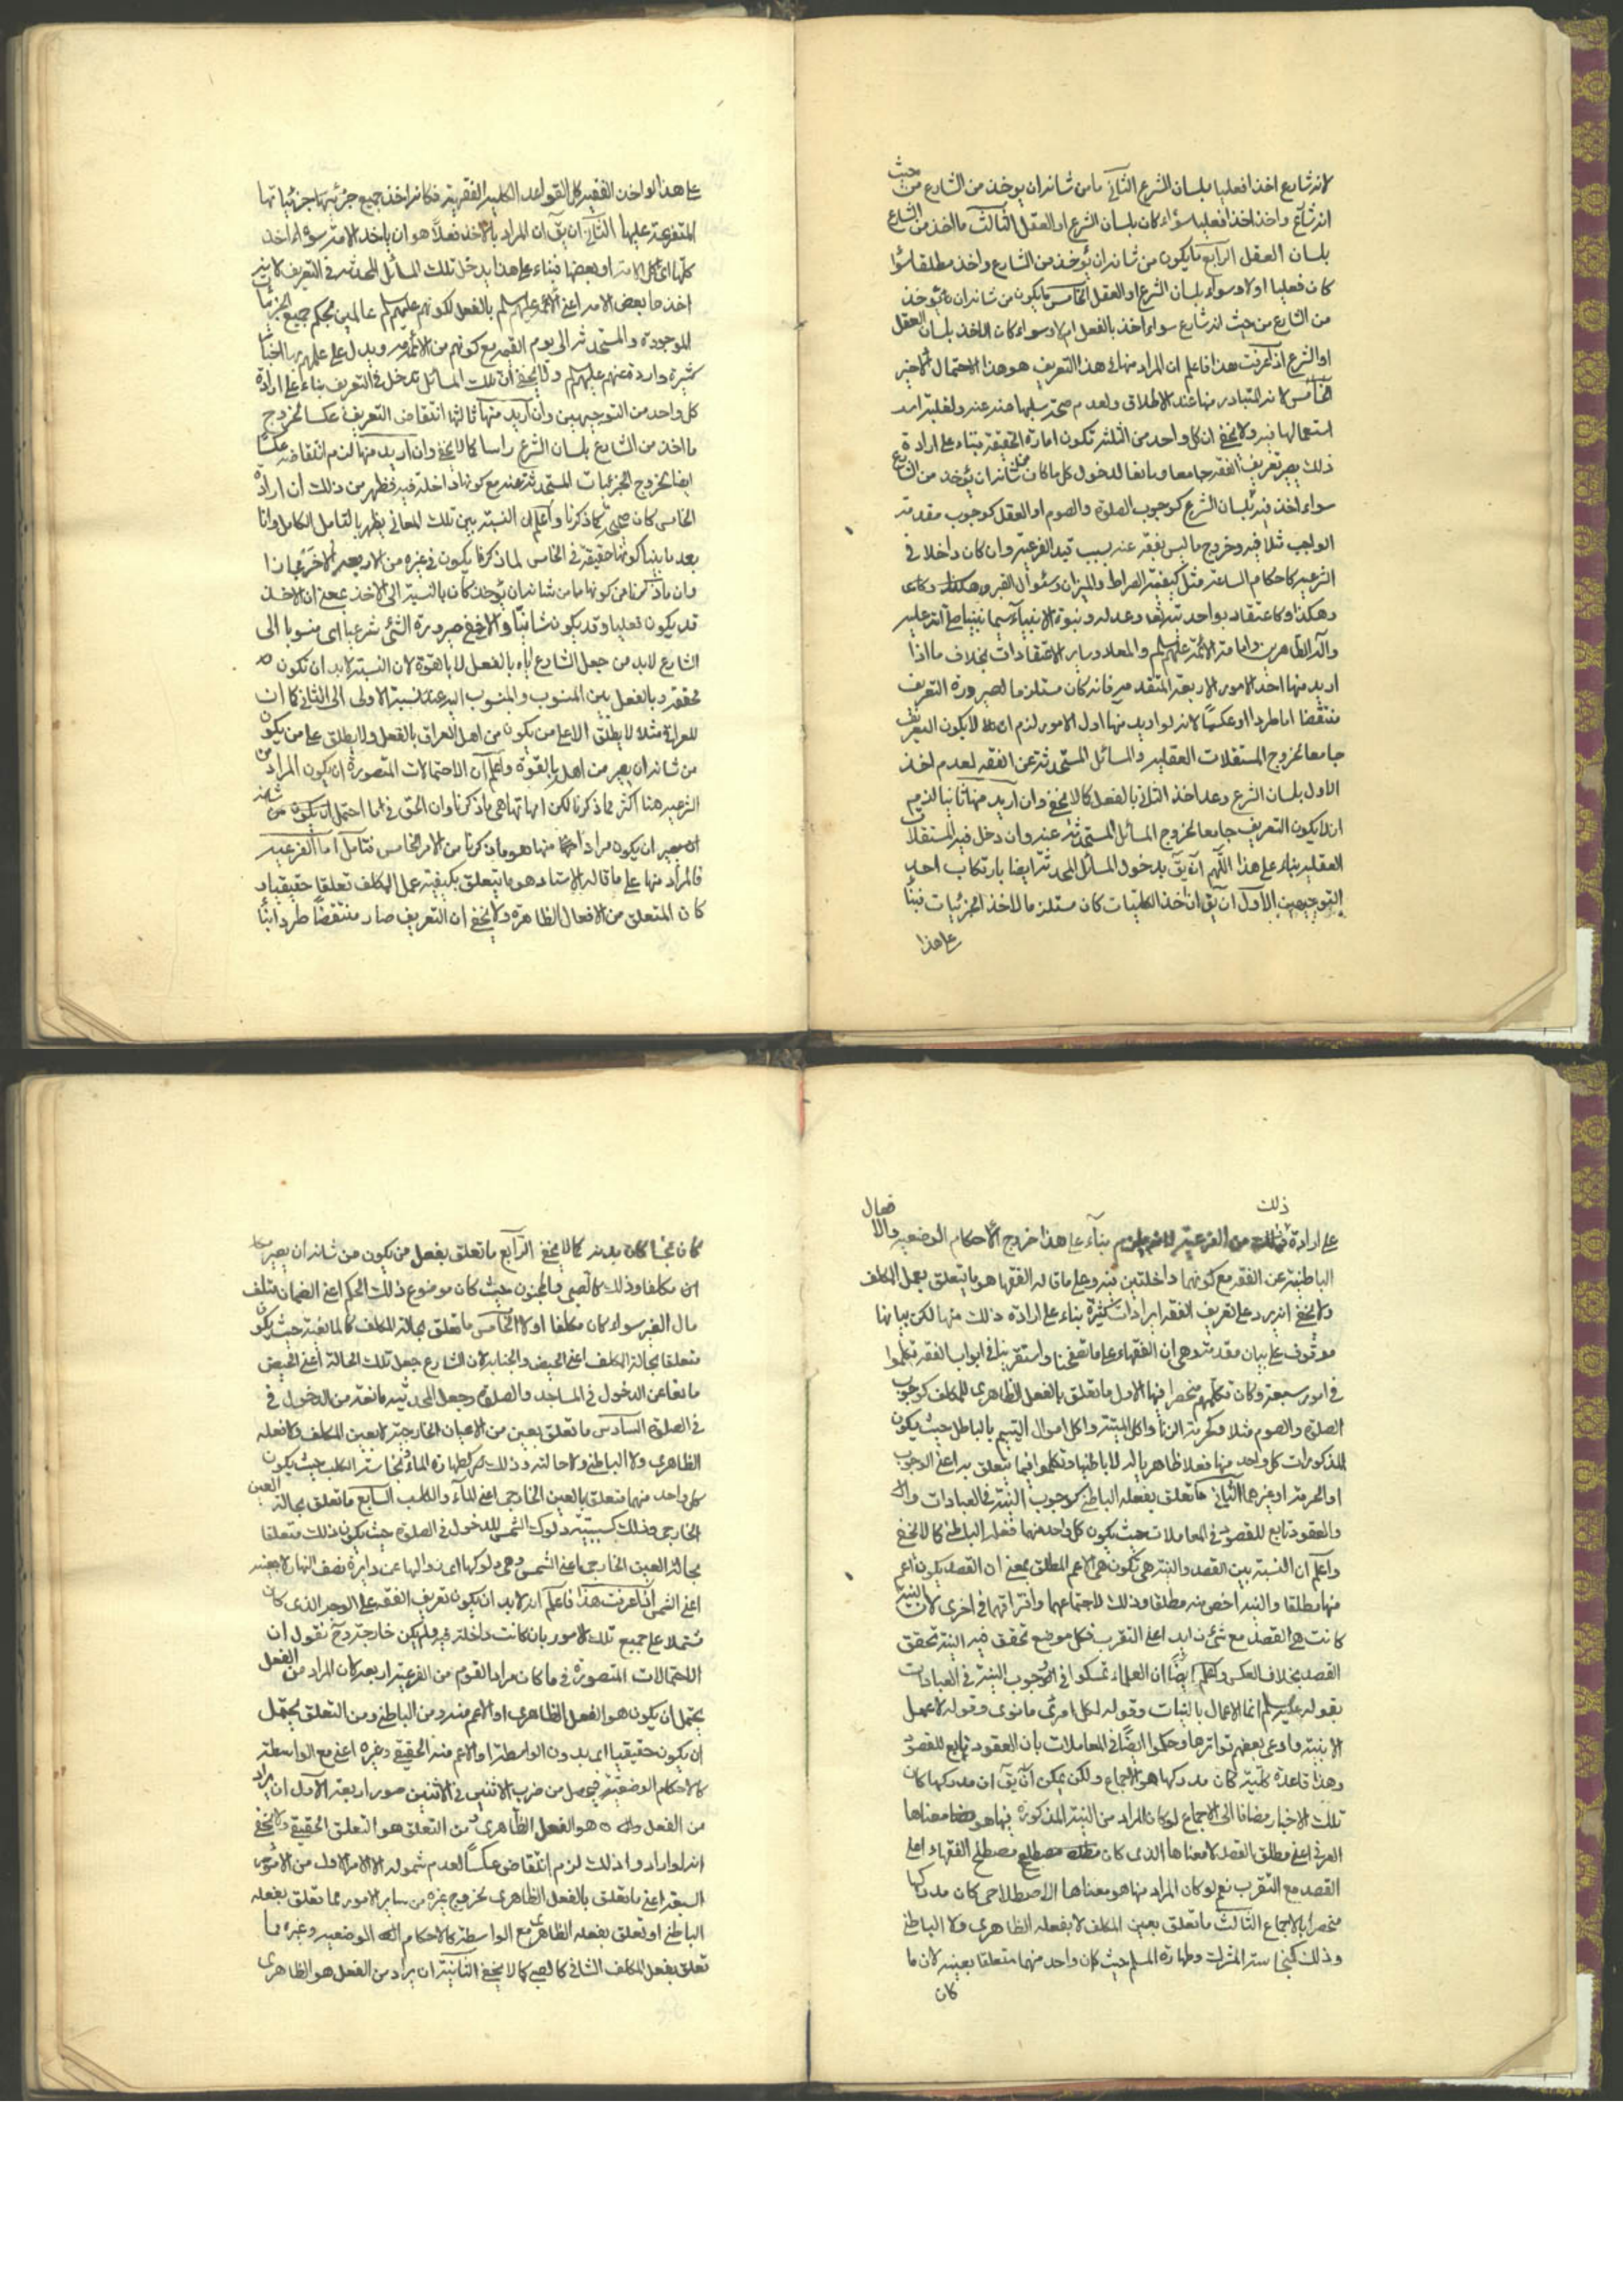 لانه شارع اخذا فعليا بلسان الشرع الثاني ما من شانه ان يوخذ من الشارع من حيث
انه شارع واخذ اخذا فعليا سواء كان بلسان الشرع او العقل الثالث ما اخذ من الشارع
بلسان العقل الرابع ما يكون من شانه ان يؤخذ من الشارع واخذ مطلقا سواء
كان فعليا اولا وسواء بلسان الشرع او العقل الخامس ما يكون من شانه ان يؤخذ
من الشارع من حيث انه شارع سواء اخذ بالفعل ام لا وسواء كان الاخذ بلسان العقل
او الشرع اذا عرفت هذا فاعلم ان المراد منها في هذا التعريف هو هذا الاحتمال الاخير
الخامس لانه المتبادر منها عند الاطلاق ولعدم صحة سلبها عنه ولغلبة
استعمالها فيه ولا يخفى ان كل واحد من الثلثة تكون امارة الحقيقة بناء على ارادة
ذلك يصير تعريف الفقه جامعا ومانعا لدخول كل ما كان من شانه ان يؤخذ من الشارع
سواء اخذ فيه بلسان الشرع كوجوب الصلوة والصوم او العقل كوجوب مقدمة
الواجب مثلا فيه وخروج ما ليس بفقه عنه بسبب قيد الفرعية وان كان داخلا في
الشرعية كاحكام مثل كيفية الصراط والميزان وسئوال القبر وهكذا
وهكذا وكاعتقاد بواحد تعالى وعدله ونبوة الانبياء سيما نبينا صلى الله عليه
واله الطاهرين وامامة الائمة عليهم السلم والمعاد وساير الاعتقادات بخلاف ما اذا
اريد منها احد الامور الاربعة المتقدمة فانه كان مستلزما لصيرورة التعريف
منتقضا اما طردا او عكسا لانه لو اريد منها اول الامور لزم ان لا يكون التعريف
جامعا لخروج المستقلات العقلية والمسائل المستحدثة عن الفقه لعدم اخذ
الاول بلسان الشرع وعدم اخذ الثاني بالفعل كما لا يخفى وان اريد منها ثانيا لزم
ان لا يكون التعريف جامعا لخروج المسائل المستحدثة عنه وان دخل فيه المستقلات
العقلية بناء على هذا اللهم ان يق بدخول المسائل المحدثة ايضا بارتكاب احد
التوجيهين الاول ان يق ان اخذ الكليات كان مستلزما لاخذ الجزئيات فبناء
على هذا
على هذا لو اخذ الفقيه كل القواعد الكلية الفقهية فكانه اخذ جميع جزئياتها
المتفرعة عليها الثاني ان يق ان المراد بالاخذ فعلا هو ان ياخذ الامة سواء اخذ
كلها اي كل الامة او بعضها فبناء على هذا يدخل تلك المسائل المحدثة في التعريف
اخذها بعض الامة اعني الائمة عليهم السلم بالفعل لكونهم عليهم السلم عالمين بحكم جميع الجزئيات
الموجودة والمستحدثة الى يوم القيمة مع كونهم من الامة ويدل على علمهم بها اخبار
كثيرة واردة عنهم عليهم السلم ولا يخفى ان تلك المسائل تدخل في التعريف بناء على ارادة
كل واحد من التوجيهين وان اريد منها ثالثها انتقاض التعريف عكسا لخروج
ما اخذ من الشارع بلسان الشرع راسا كما لا يخفى وان اريد منها لزم انتقاضه عكسا
ايضا لخروج الجزئيات المستحدثة عنه مع كونها داخلة فيه فظهر من ذلك ان ارادة
الخامس كان صحيح كما ذكرنا واعلم ان النسبة بين تلك المعاني يظهر بالتامل الكامل وانا
بعد ما بينا كونها حقيقة في الخامس لما ذكرنا يكون في غيره من الاربعة الاخر مجازا
وان ما ذكرنا من كونها ما من شانه ان يؤخذ كان بالنسبة الى الاخذ بمعنى ان الاخذ
قد يكون فعليا وقد يكون شانيا والا فمع صيرورة الشئ شرعيا اي منسوبا الى
الشارع لابد من جعل الشارع اياه بالفعل لا بالقوة لان النسبة لابد ان تكون
محققة وبالفعل بين المنسوب والمنسوب اليه عند نسبة الاولى الى الثاني كما ان
للعراقي مثلا لا يطلق الا على من يكون من اهل العراق بالفعل ولا يطلق على من يكون
من شانه ان يصير من اهل بالقوة واعلم ان الاحتمالات المتصورة ان يكون المراد من
الشرعية هنا اكثر مما ذكرنا لكن امهاتها هي ما ذكرنا وان الحق في ما احتمل ان يكون من شانه
ان يصير ان يكون مرادا منها هو ما ذكرنا من الامر الخامس فتامل اما الفرعية
فالمراد منها على ما قاله الاستاد هو ما يتعلق بكيفية عمل المكلف تعلقا حقيقيا و
كان المتعلق من الافعال الظاهرة ولا يخفى ان التعريف صار منتقضا طردا بناء
على ارادة ذلك من الفرعية بناء على هذا خروج الاحكام الوضعية والافعال
الباطنية عن الفقه مع كونهما داخلتين فيه وعلى ما قاله الفقها هو ما يتعلق بعمل المكلف
ولا يخفى انه يرد على تعريف الفقه ايرادات كثيرة بناء على ارادة ذلك منها لكن بيانها
موقوف على بيان مقدمة وهي ان الفقهاء على ما تفحصنا واستقرينا في ابواب الفقه تكلموا
في امور سبعة وكان تكلمهم منحصرا فيها الاول ما تعلق بالفعل الظاهري للمكلف كوجوب
الصلوة والصوم مثلا وكحرمة الزنا واكل الميتة واكل اموال اليتيم بالباطل حيث يكون
المذكورات كل واحد منها فعلا ظاهريا له لا باطنيا وتكلموا فيما يتعلق به اعني الوجوب
او الحرمة او غيرهما الثاني ما تعلق بفعله الباطني كوجوب النية في العبادات
والعقود تابع للقصود في المعاملات حيث يكون كل واحد منهما فعله الباطني كما لا يخفى
واعلم ان النسبة بين القصد والنية هي تكون هي الاعم المطلق بمعنى ان القصد يكون اعم
منها مطلقا والنية اخص منه مطلقا وذلك لاجتماعهما وافتراقهما في اخرى لان النية
كانت هي القصد مع شئ زايد اعني التقرب فكل موضع تحقق فيه النية تحقق
القصد بخلاف العكس واعلم ايضا ان العلماء تمسكوا في الوجوب النية في العبادات
بقوله عليه السلم انما الاعمال بالنيات وقوله لكل امرئ ما نوى وقوله لا عمل
الا بنية وادعى بعضهم تواترها وحكموا ايضا في المعاملات بان العقود تابع للقصود
وهذا قاعدة كلية كان مدركها هو الاجماع ولكن يمكن ان يق ان مدركها كان
تلك الاخبار مضافا الى الاجماع لو كان المراد من النية المذكورة فيها هو معناها
العرفي اعني مطلق القصد لا معناها الذي كان مصطلح الفقهاء اعني
القصد مع التقرب نعم لو كان المراد منها هو معناها الاصطلاحي كان مدركها
منحصرا بالاجماع الثالث ما تعلق بعين المكلف لا بفعله الظاهري ولا الباطني
وذلك كنجاسة المشرك وطهارة المسلم حيث كان واحد منهما متعلقا بعينه لان ما
كان
كان نجسا كان بدنه كما لا يخفى الرابع ما تعلق بفعل من يكون من شانه ان يصير
مكلفا وذلك كالصبي والمجنون حيث كان موضوع ذلك الحكم اعني الضمان متلف
مال الغير سواء كان مكلفا اولا الخامس ما تعلق بحالة المكلف كالمانعية حيث يكون
متعلقا بحالة المكلف اعني الحيض والجنابة لان الشارع جعل تلك الحالة اعني الحيض
مانعا عن الدخول في المساجد والصلوة وجعل المحدثية مانعة من الدخول في
في الصلوة السادس ما تعلق بعين من الاعيان الخارجية لا بعين المكلف ولا فعله
الظاهري ولا الباطني ولا حالته وذلك كطهارة الماء ونجاسة الكلب حيث يكون
كل واحد منهما متعلق بالعين الخارجي اعني الماء والكلب السابع ما تعلق بحالة العين
الخارجي وذلك كسببية دلوك الشمس للدخول في الصلوة حيث يكون ذلك متعلقا
بحالة العين الخارجي اعني الشمس وهي دلوكها اي زوالها عن دايرة نصف النهار لا بعينه
اعني الشمس اذا عرفت هذا فاعلم انه لابد ان يكون تعريف الفقه على الوجه الذي كان
مشتملا على جميع تلك الامور بان كانت داخلة فيه ولم يكن خارجة وح نقول ان
الاحتمالات المتصورة في ما كان مراد القوم من الفرعية اربعة كان المراد من الفعل
يحتمل ان يكون هو الفعل الظاهري او الاعم منه ومن الباطني ومن التعلق يحتمل
ان يكون حقيقيا اي بدون الواسطة او الاعم منه الحقيقي وغيره اعني مع الواسطة
كالاحكام الوضعية فيحصل من ضرب الاثنين في الاثنين صور اربعة الاول ان يراد
من الفعل هو الفعل الظاهري ومن التعلق هو التعلق الحقيقي ولا يخفى
انه لو اراد ذلك لزم انتقاض عكسا لعدم شموله الا الامر الاول من الامور
السبعة اعني ما تعلق بالفعل الظاهري لخروج غيره من ساير الامور مما تعلق بفعله
الباطني او تعلق بفعله الظاهري مع الواسطة كالاحكام الوضعية وغيره مما
تعلق بفعل المكلف الشاني كالصبي كما لا يخفى الثانية ان يراد من الفعل هو الظاهري